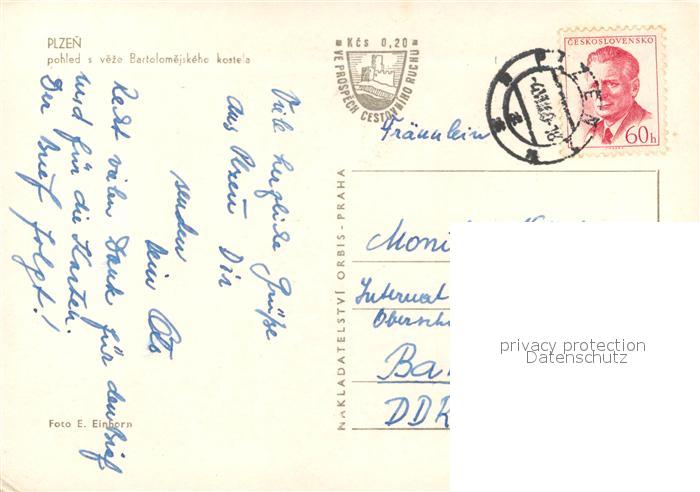 PLZEŇ
pohled s věže Bartolomějského kostela
Kčs 0,20
VE PROSPĚCH CESTOVNÍHO RUCHU
PLZEŇ
ČESKOSLOVENSKO
60h
Fräunlein
Viele herzliche Grüße
aus Plzeň Dir
senden
Dein
Recht vielen Dank für den Brief
und für die Karten.
Der Brief folgt!
NAKLADATELSTVÍ ORBIS-PRAHA
Moni
Internat
Obersch
Ba
DDR
privacy protection
Datenschutz
Foto E. Einhorn